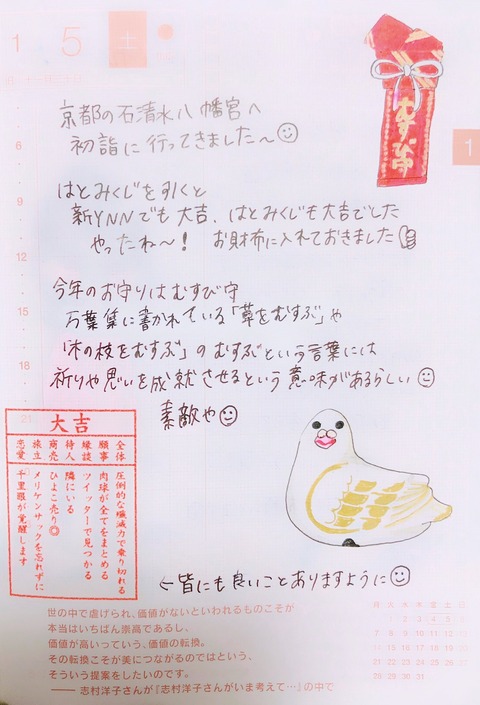 1 5 土
むすび守
1
6
9
12
15
18
21
京都の石清水八幡宮へ
初詣に行ってきました〜
はとみくじを引くと
新YNNでも大吉、はとみくじも大吉でした
やったね〜! お財布に入れておきました
今年のお守りはむすび守
万葉集に書かれている「草をむすぶ」や
「木の枝をむすぶ」のむすぶという言葉には
祈りや思いを成就させるという意味があるらしい
素敵や
大吉
全体 圧倒的な殲滅力で乗り切れる
願事 肉球が全てをまとめる
縁談 ツイッターで見つかる
待人 隣にいる
商売 ひよこ売り◎
旅立 メリケンサックを忘れずに
恋愛 千里眼が覚醒します
←皆にも良いことありますように
世の中で虐げられ、価値がないといわれるものこそが
本当はいちばん崇高であるし、
価値が高いっていう、価値の転換。
その転換こそが美につながるのではという、
そういう提案をしたいのです。
―― 志村洋子さんが『志村洋子さんがいま考えて…』の中で
月 火 水 木 金 土 日
1 2 3 4 5 6
7 8 9 10 11 12 13
14 15 16 17 18 19 20
21 22 23 24 25 26 27
28 29 30 31